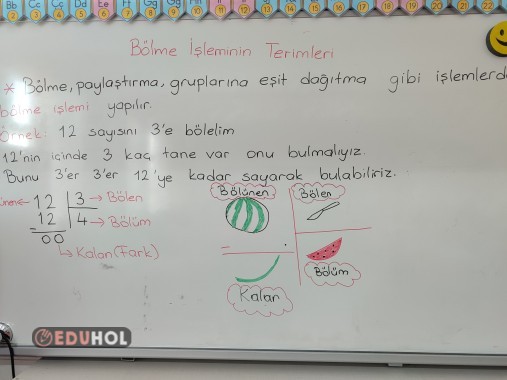 Bb Cc Çç Dd Ee Ff Gg Ğğ
10 11 12 13 14 15 16 17 18 19 20 21 22
Bölme İşleminin Terimleri
* Bölme, paylaştırma, gruplarına eşit dağıtma gibi işlemlerd
bölme işlemi yapılır.
Örnek: 12 sayısını 3'e bölelim
12'nin içinde 3 kaç tane var onu bulmalıyız.
Bunu 3'er 3'er 12'ye kadar sayarak bulabiliriz.
nen← 12 3 → Bölen
12 4 → Bölüm
00
Kalan (Fark)
Bölünen Bölen
Bölüm
Kalan
EDUHOL